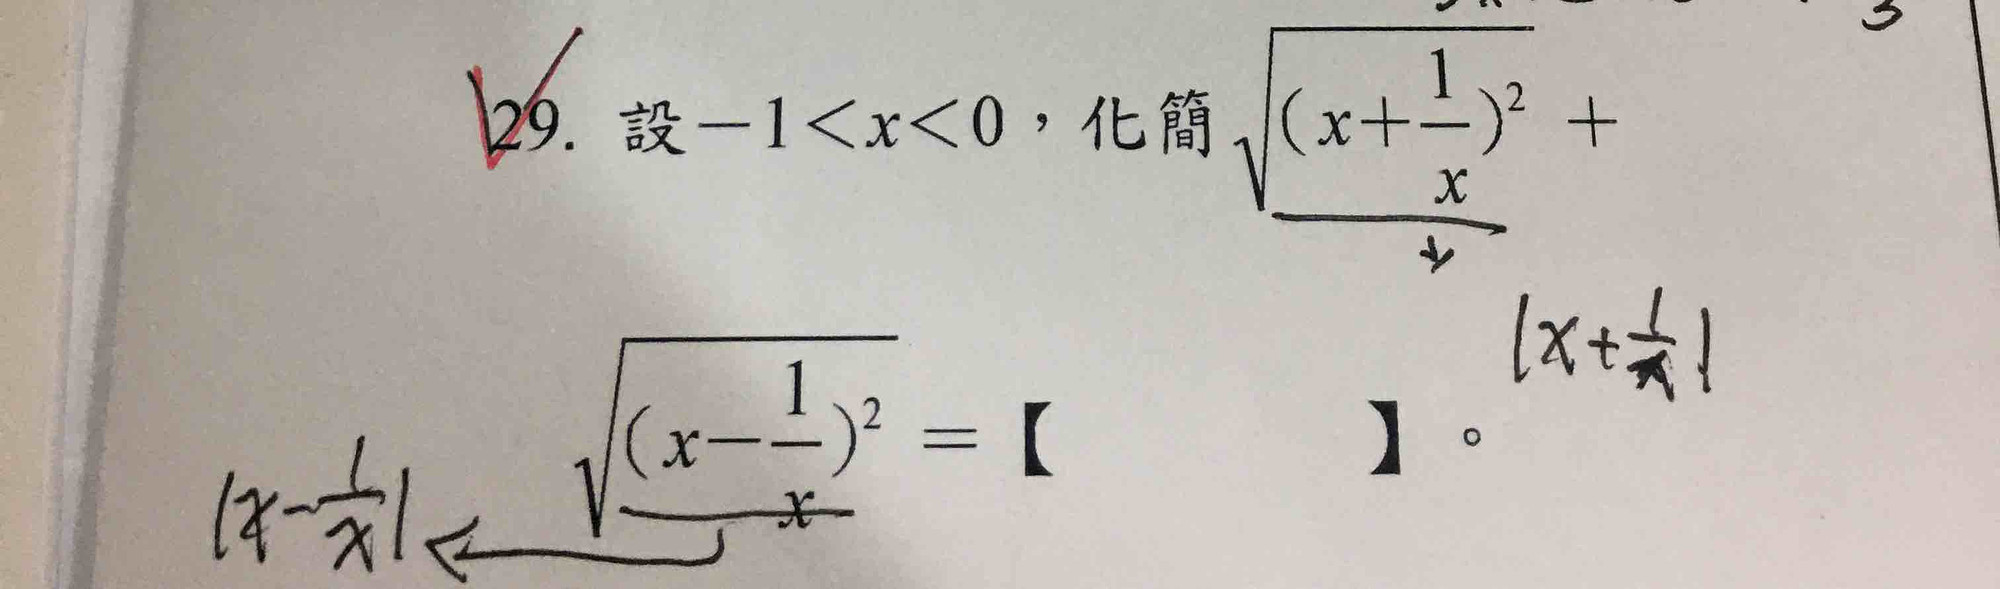 29. 設-1<x<0，化簡√(x+1/x)² +
|x+1/x|
√(x-1/x)² =【 】。
|x-1/x|